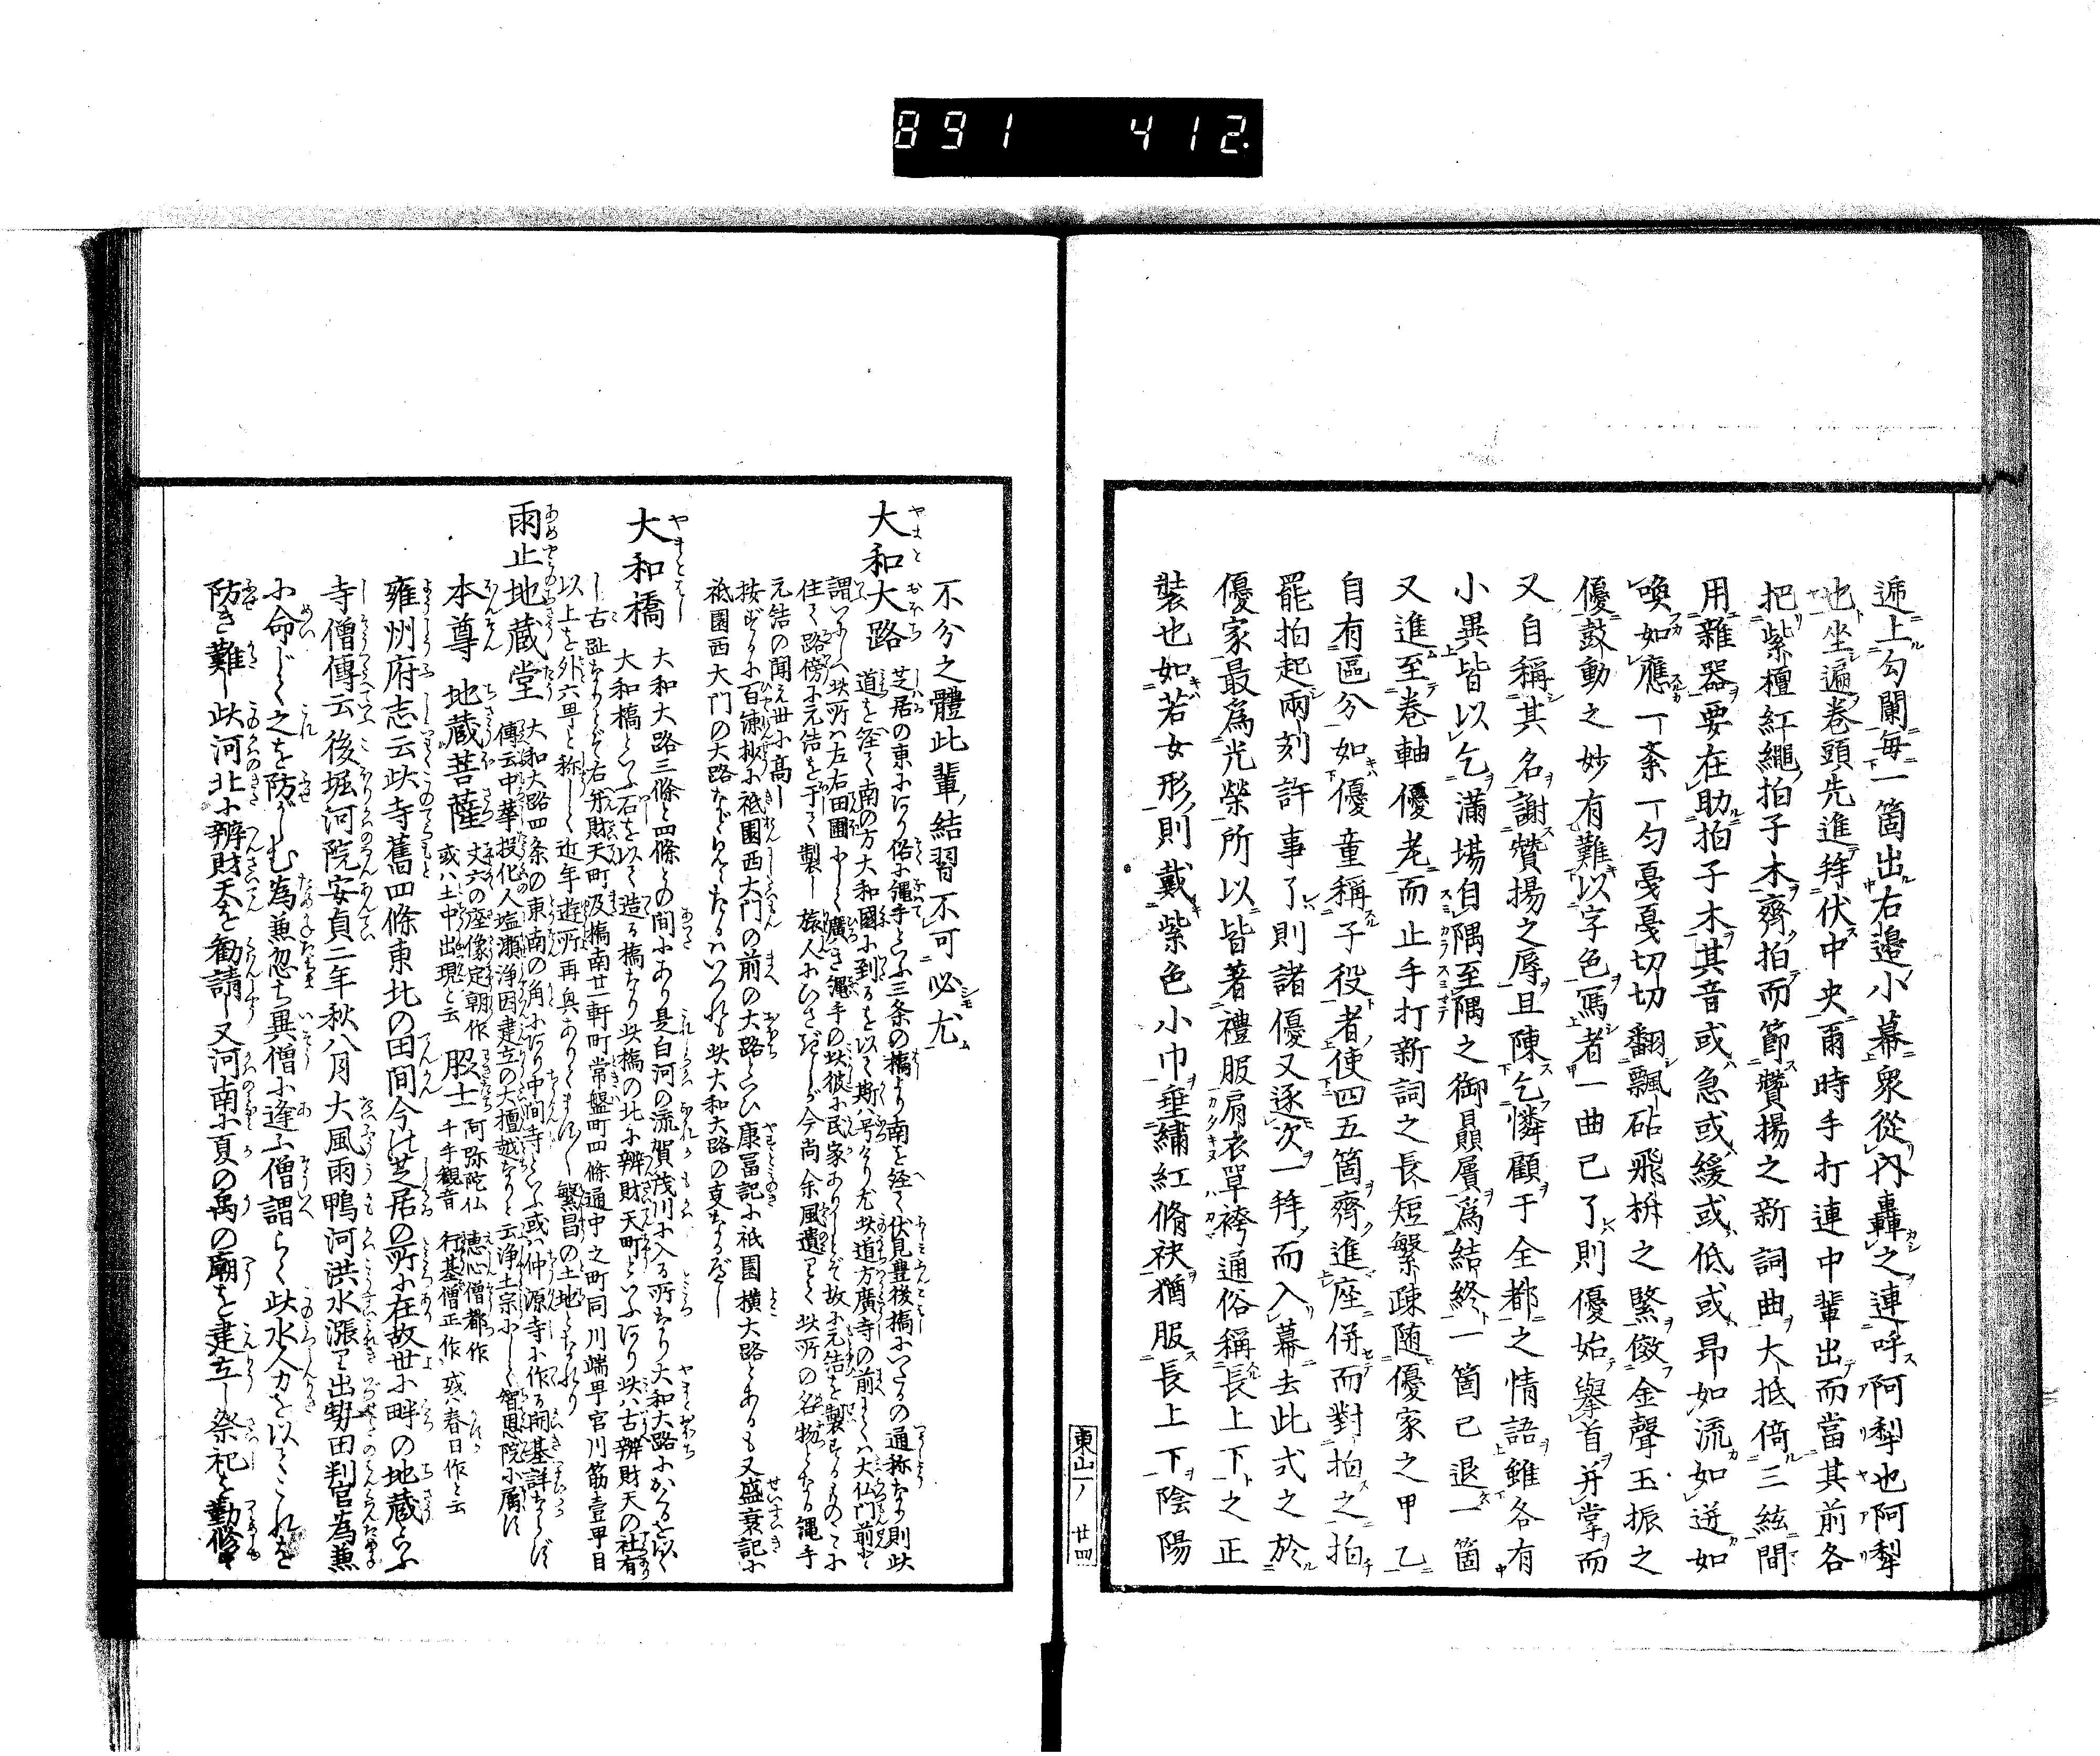 891 412
遞上勾闌毎一箇出右邉小幕衆從內轟之連呼阿犁也阿犁
也坐遍巻頭先進拜伏中央爾時手打連中輩出而當其前各
把紫檀紅繩拍子木齊拍而節賛揚之新詞曲大抵倚三絃間
用雜器要在助拍子木其音或急或緩或低或昻如流如迸如
喚如應丁紊丁匀戞戞切切翻飄砧飛柝之緊儌金聲玉振之
優鼓動之妙有難以字色寫者一曲已了則優始擧首并掌而
又自稱其名謝賛揚之辱且陳乞憐顧于全都之情語雖各有
小異皆以乞滿場自隅至隅之御贔屓為結終一箇已退一箇
又進至巻軸優老而止手打新詞之長短繁疎随優家之甲乙
自有區分如優童稱子役者使四五箇齊進座併而對拍之拍
罷拍起兩刻許事了則諸優又逐次一拜而入幕去此式之於
優家最為光榮所以皆著禮服肩衣單袴通俗稱長上下之正
裝也如若女形則戴紫色小巾垂繡紅脩袂猶服長上下陰陽
東山一ノ 廿四
不分之體此輩結習不可必尤
大和大路 芝居の東にあり俗に縄手といふ三条の橋より南を経て伏見豊後橋にいたるの通称なり則此
道を経て南の方大和國に到るを以て斯ハ号くるなり尤此道方廣寺の前にてハ大仏門前と
謂いにしへ此所ハ左右田圃にして廣き縄手の此彼に民家ありしとぞ故に元結を製するものこに
住て路傍に元結を干て製し旅人にひさぎしが今尚余風遺りて此所の名物となる縄手
元結の聞え世に高し
按ずるに百練抄に祇園西大門の前の大路といひ康冨記に祇園横大路とあるも又盛衰記に
祇園西大門の大路などゝしたるハいづれも此大和大路の支なるべし
大和橋 大和大路三條と四條との間にあり是白河の流賀茂川に入る所なり大和大路にかくるを以て
大和橋といふ石を以て造る橋なり此橋の北に辨財天町といふあり此ハ古辨財天の社有
し古趾なりとぞ右弁財天町及橋南廿一軒町常盤町四條通中之町同川端早宮川筋壹甼目
以上を外六甼と称して近年遊所再興ありてます〳〵繁昌の土地となれり
雨止地蔵堂 大和大路四条の東南の角にあり中間寺といふ或ハ仲源寺に作る開基詳ならず
傳云中華投化人塩瀬浄因建立の大檀越なりと云浄土宗にして智恩院に属す
本尊 地蔵菩薩 丈六の座像定朝作或ハ土中出現と云 脇士 阿弥陀仏 恵心僧都作 千手観音 行基僧正作或ハ春日作と云
雍州府志云此寺舊四條東北の田間今の芝居の所に在故世に畔の地蔵といふ
寺僧傳云後堀河院安貞二年秋八月大風雨鴨河洪水漲り出勢田判官為兼
に命じて之を防がしむ為兼忽ち異僧に逢ふ僧謂らく此水人力を以てこれを
防き難し此河北に辨財天を勧請し又河南に夏の禹の廟を建立し祭祀を勤修せ